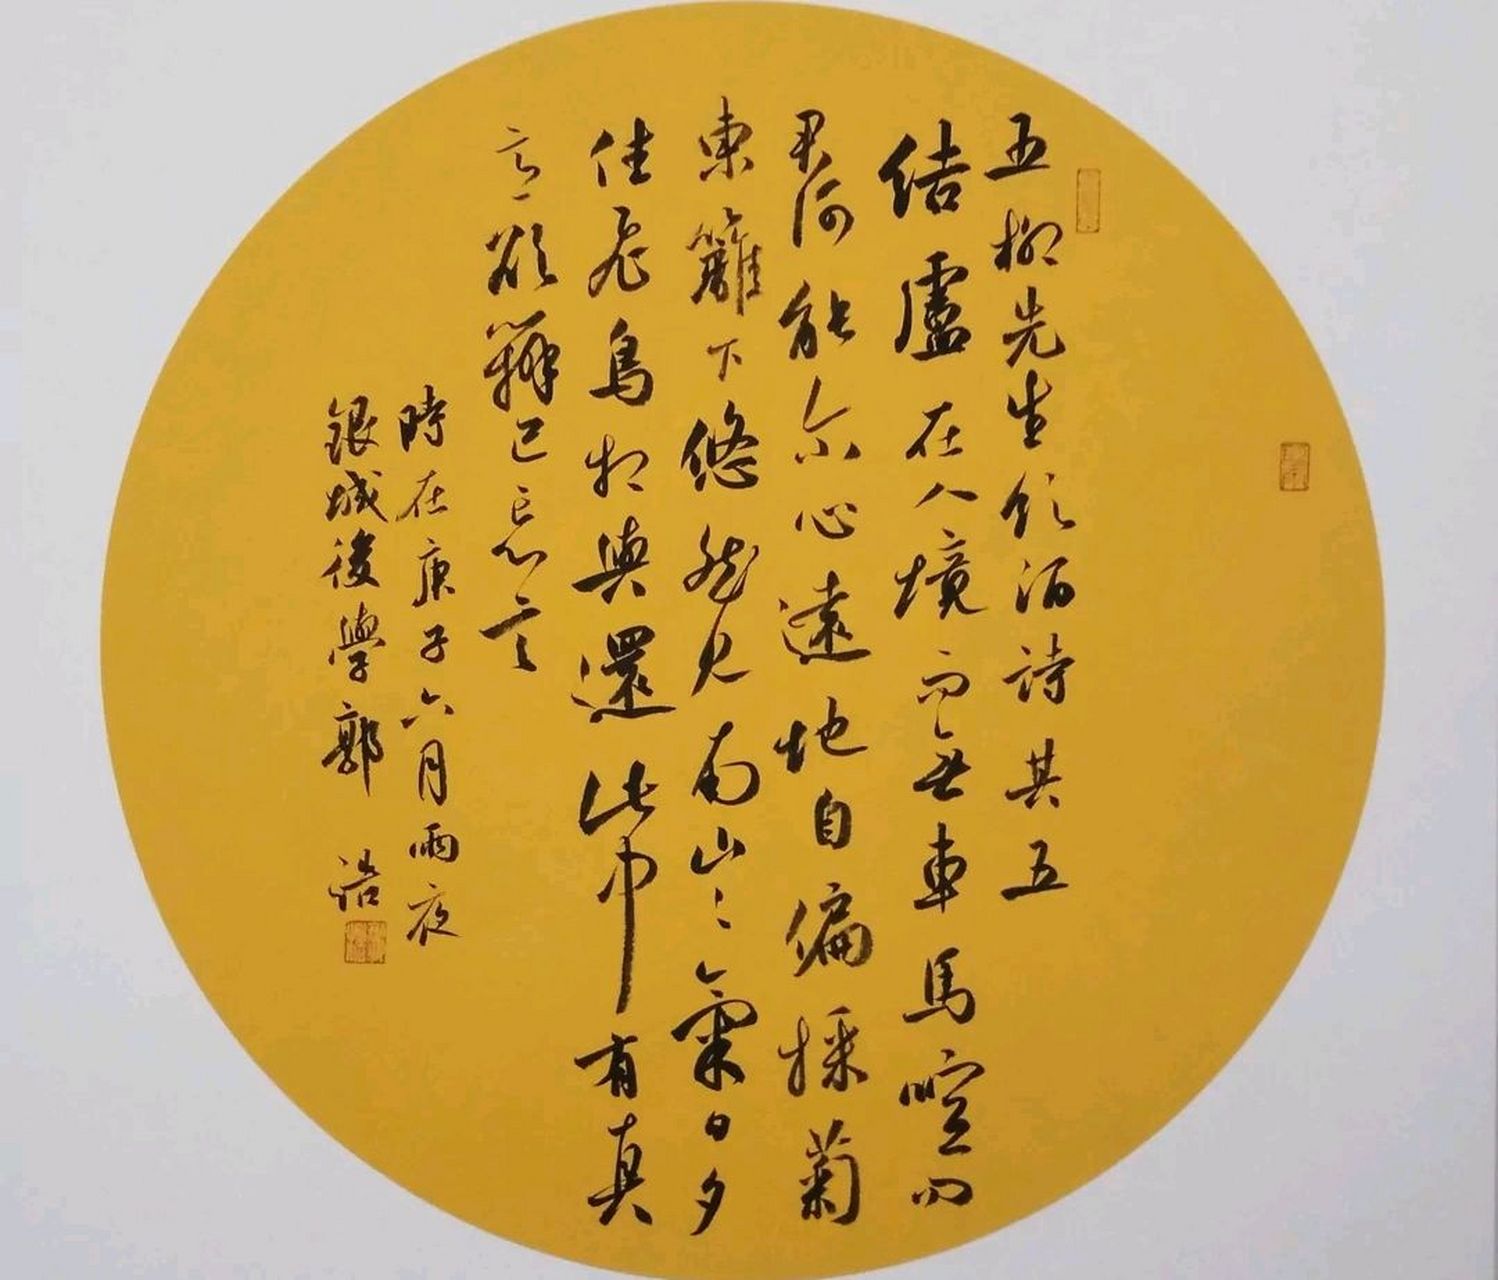 五柳先生飲酒詩其五
結廬在人境而無車馬喧問
君何能尔心遠地自偏採菊
東籬下悠然見南山山氣日夕
佳飛鳥相與還此中有真
意欲辯已忘言
時在庚子六月雨夜
銀城後學郭浩